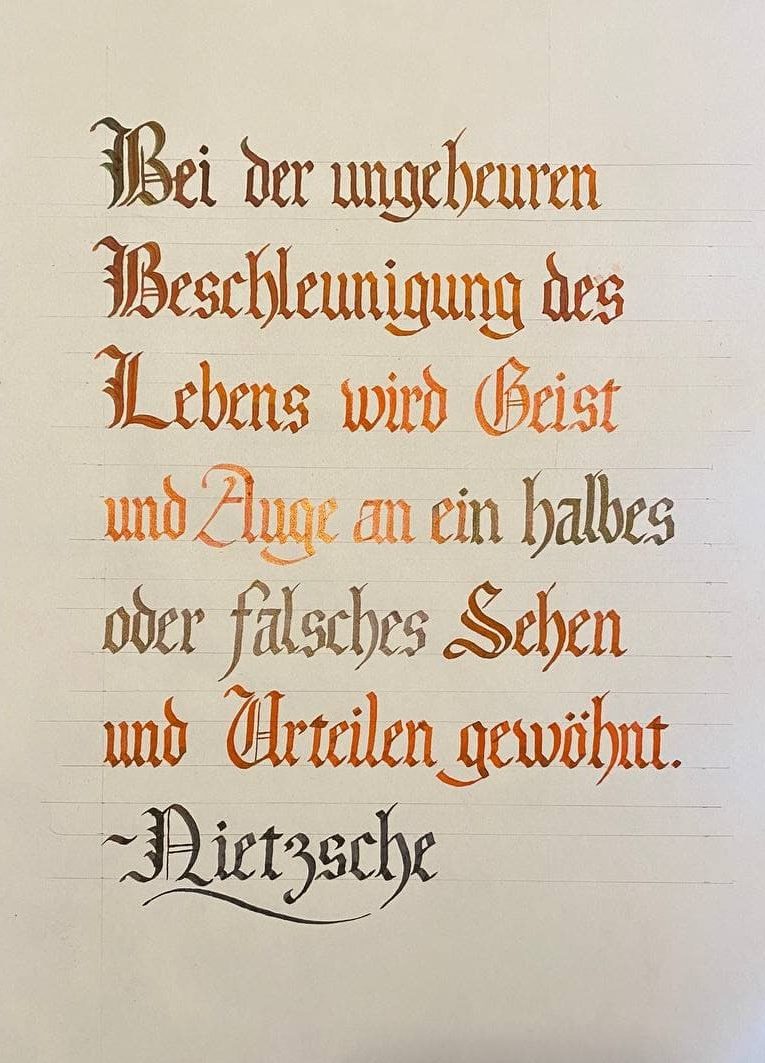 Bei der ungeheuren
Beschleunigung des
Lebens wird Geist
und Auge an ein halbes
oder falsches Sehen
und Urteilen gewöhnt.
~Nietzsche